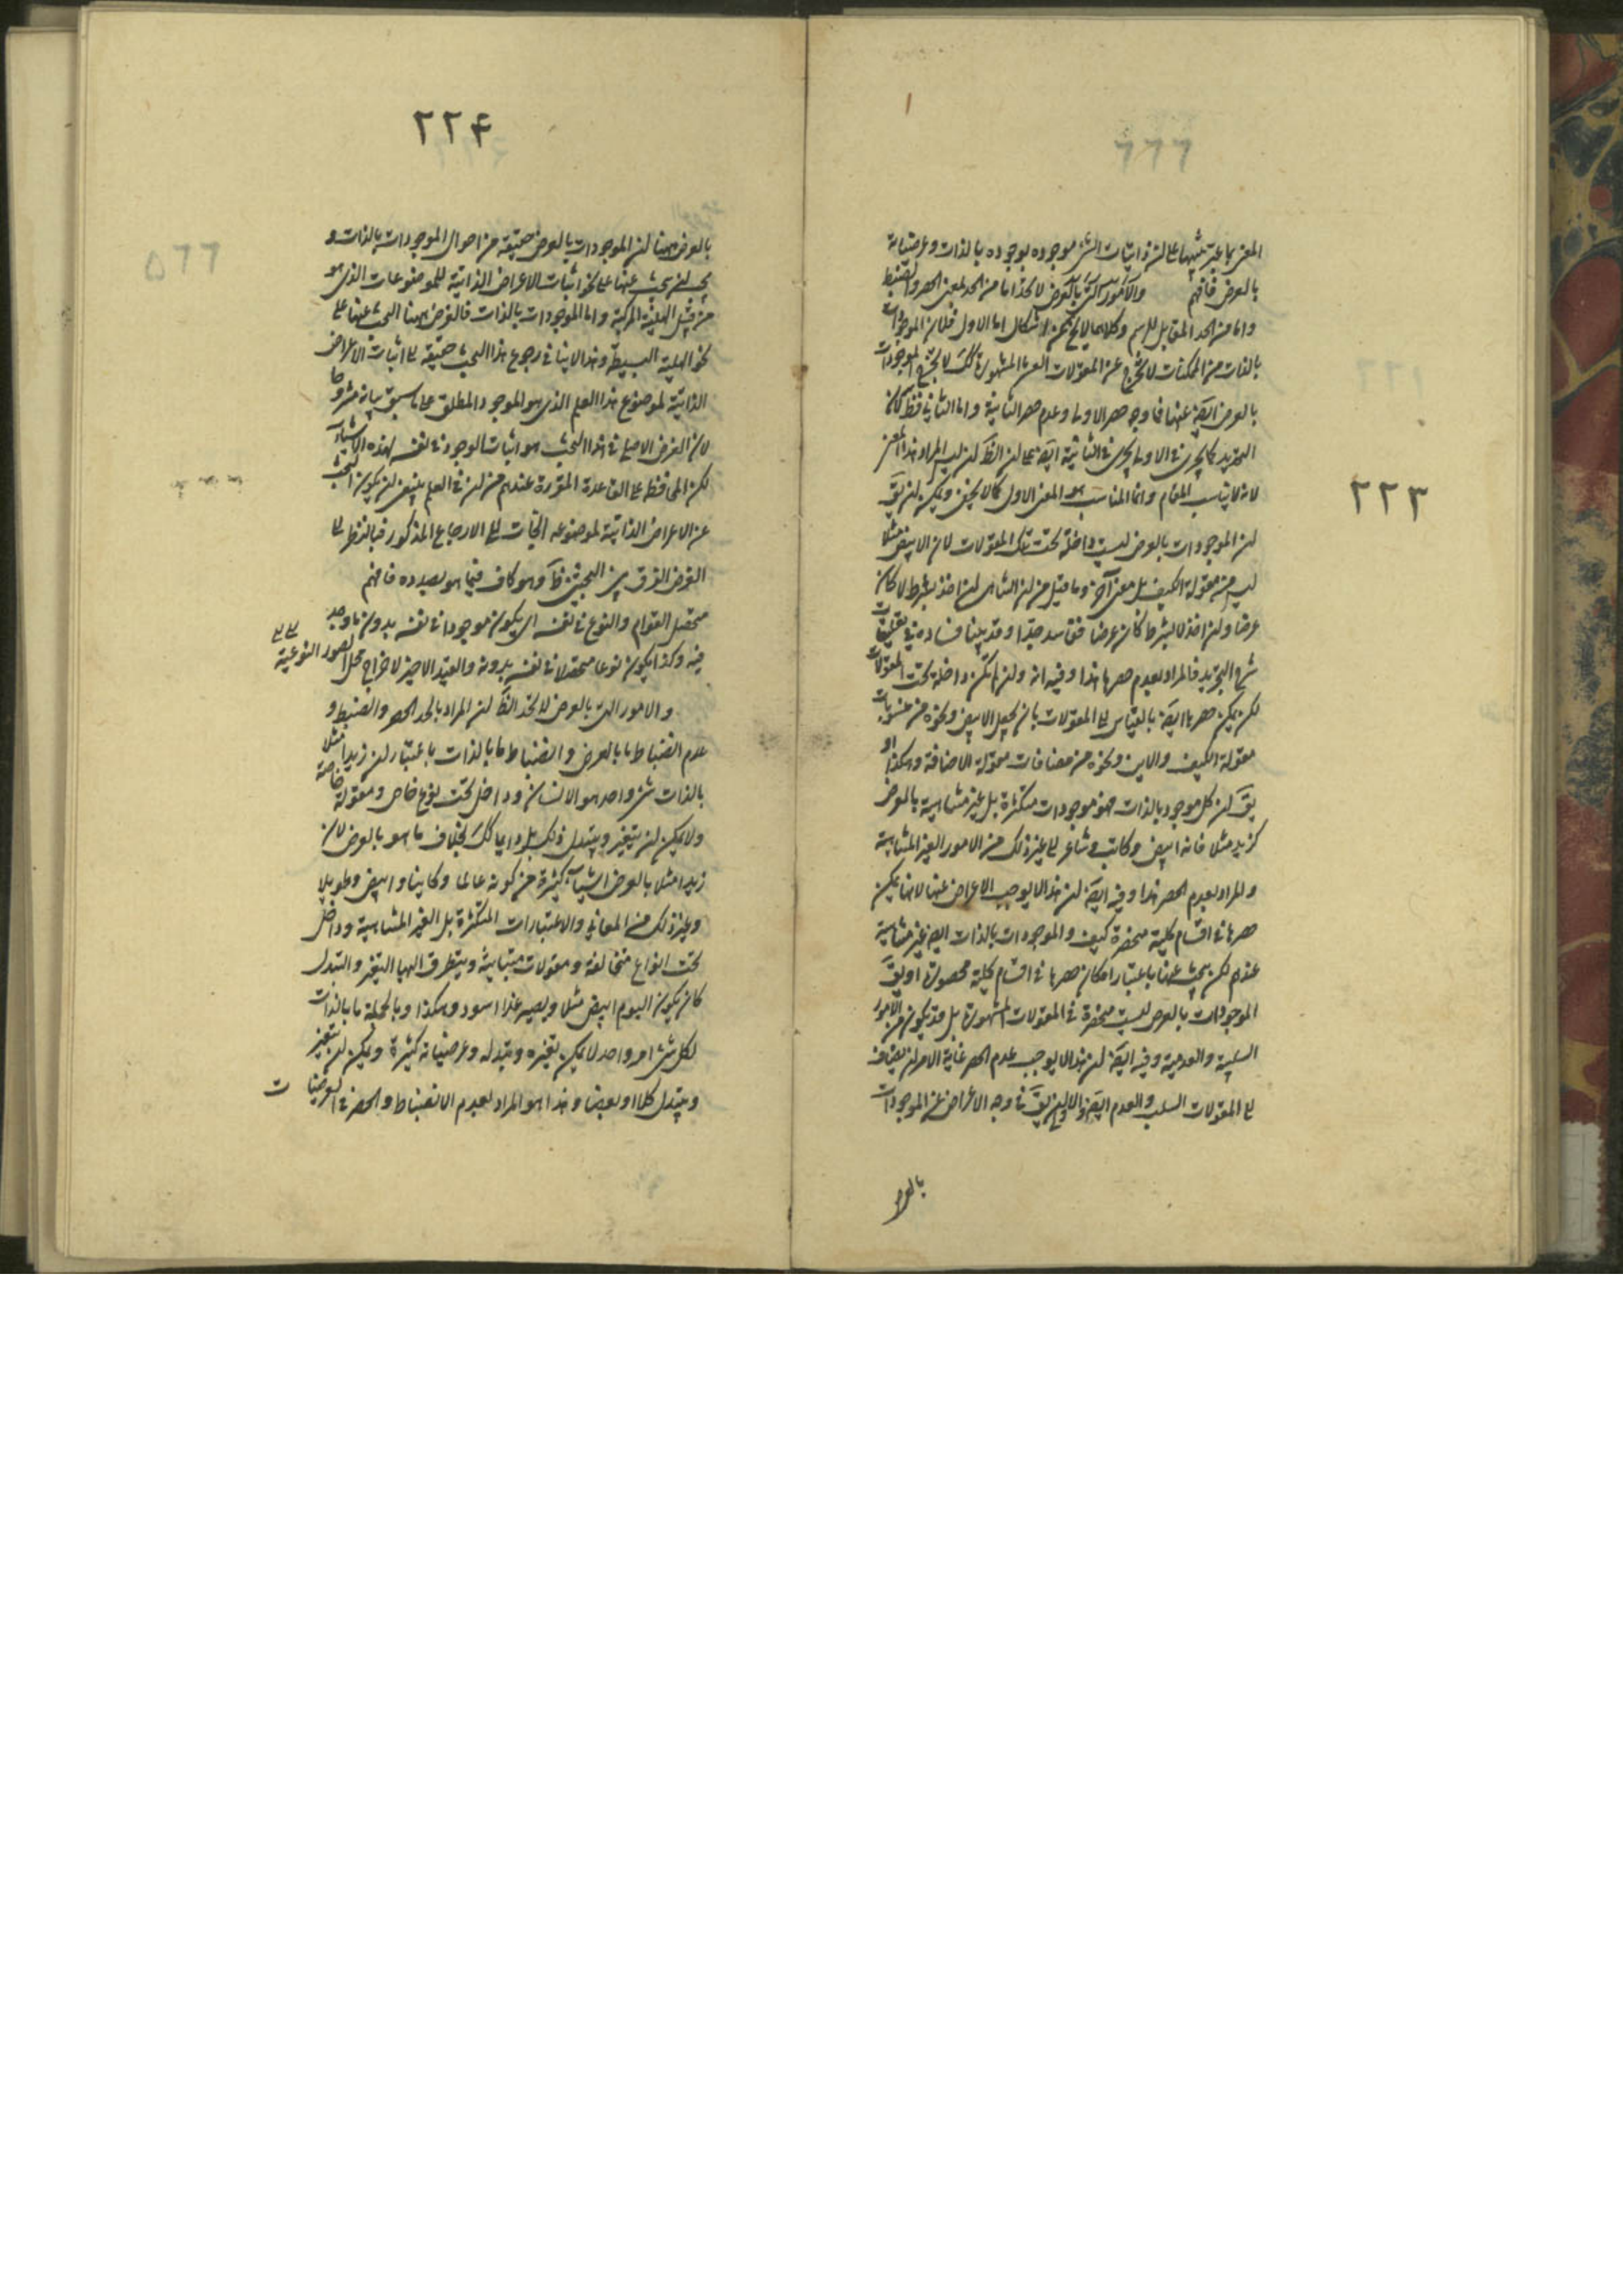 ٢٢٣
المعنى باعتبار على ان ذاتيات الشئ موجودة بوجوده بالذات وعرضياته
بالعرض فافهم والامور التى بالعرض لا تحد اما من الحد بمعنى الحصر والضبط
واما من الحد المقابل للرسم وكلاهما لا يخ عن اشكال اما الاول فلان الموجودات
بالذات من الممكنات لا تخرج عن المقولات العشر المشهورة كك لا تخرج الموجودات
بالعرض ايضا عنها فما وجه حصر الاولى وعدم حصر الثانية واما الثانى فظ لان
التحديد كما يجرى فى الاولى يجرى فى الثانية ايضا على ان الظ ان ليس المراد هذا المعنى
لانه لا يناسب المقام وانما المناسب هو المعنى الاول كما لا يخفى ويمكن ان يق
ان الموجودات بالعرض ليست داخلة تحت تلك المقولات لان الابيض مثلا
ليس من مقولة الكيف بل معنى آخر وما قيل من ان الشئ ان اخذ بشرط لا كان
عرضا وان اخذ لا بشرط كان عرضيا فاسد جدا وقد بينا فساده فى تعليقات
شرح التجريد فالمراد بعدم حصرها هذا وفيه انه وان لم تكن داخلة تحت المقولات
لكن يمكن حصرها ايضا بالقياس الى المقولات بان يجعل الابيض ونحوه من منسوبات
مقولة الكيف والابن ونحوه من مضافات مقولة الاضافة وهكذا او
يق ان كل موجود بالذات فهو موجودات متكثرة بل غير متناهية بالعرض
كزيد مثلا فانه ابيض وكاتب وشاعر الى غير ذلك من الامور الغير المتناهية
والمراد بعدم الحصر هذا وفيه ايضا ان هذا لا يوجب الاعراض عنها لانها يمكن
حصرها فى اقسام كلية منحصرة كيف والموجودات بالذات ايضا غير متناهية
عندهم لكن يبحث عنها باعتبار امكان حصرها فى اقسام كلية محصورة او يق
الموجودات بالعرض ليست منحصرة فى المقولات المشهورة بل قد يكون من الامور
السلبية والعدمية وفيه ايضا ان هذا لا يوجب عدم الحصر غاية الامر ان يضاف
الى المقولات السلب والعدم ايضا والاولى ان يق فى وجه الاعراض عن الموجودات
بالعر
٢٢۴
بالعرض ههنا ان الموجودات بالعرض حقيقة من احوال الموجودات بالذات و
يجب ان يبحث عنها على نحو اثبات الاعراض الذاتية للموضوعات الذى هو
من قبيل الهلية المركبة واما الموجودات بالذات فالغرض ههنا البحث عنها على
نحو الهلية البسيطة وهذا لا ينافى رجوع هذا البحث حقيقة الى اثبات الاعراض
الذاتية لموضوع هذا العلم الذى هو الموجود المطلق على ما سبق بيانه مشروحا
لان الغرض الاصلى فى هذا البحث هو اثبات الوجود فى نفسه لهذه الاشياء
لكن المحافظة على القاعدة المقررة عندهم من ان فى العلم ينبغى ان يكون البحث
عن الاعراض الذاتية لموضوعه الجأت الى الارجاع المذكور فبالنظر الى
الغرض الفرق بين البحثين ظ وهو كاف فيما هو بصدده فافهم
متحصل القوام والنوع فى نفسه اى يكون موجودا فى نفسه بدون ما وجد
فيه وكذا يكون نوعا متحصلا فى نفسه بدونه والقيد الاخير لاخراج محل الصور النوعية
والامور التى بالعرض لا تحد الظ ان المراد بالحد الحصر والضبط و
عدم انضباط ما بالعرض وانضباط ما بالذات باعتبار ان زيدا مثلا
بالذات شئ واحد هو الانسان وداخل تحت نوع خاص ومقولة خاصة
ولا يمكن ان يتغير ويتبدل ذلك بل دايما كك بخلاف ما هو بالعرض لان
زيدا مثلا بالعرض اشياء كثيرة من كونه عالما وكاتبا وابيض وطويلا
وغير ذلك من المعانى والاعتبارات المتكثرة بل الغير المتناهية وداخل
تحت انواع متخالفة ومقولات متباينة ويتطرق اليها التغير والتبدل
كان يكون اليوم ابيض مثلا ويصير غدا اسود وهكذا وبالجملة ما بالذات
لكل شئ امر واحد لا يمكن تغيره وتبدله وعرضياته كثيرة ويمكن ان يتغير
ويتبدل كلا او بعضا وهذا هو المراد بعدم الانضباط والحصر فى العرضيات